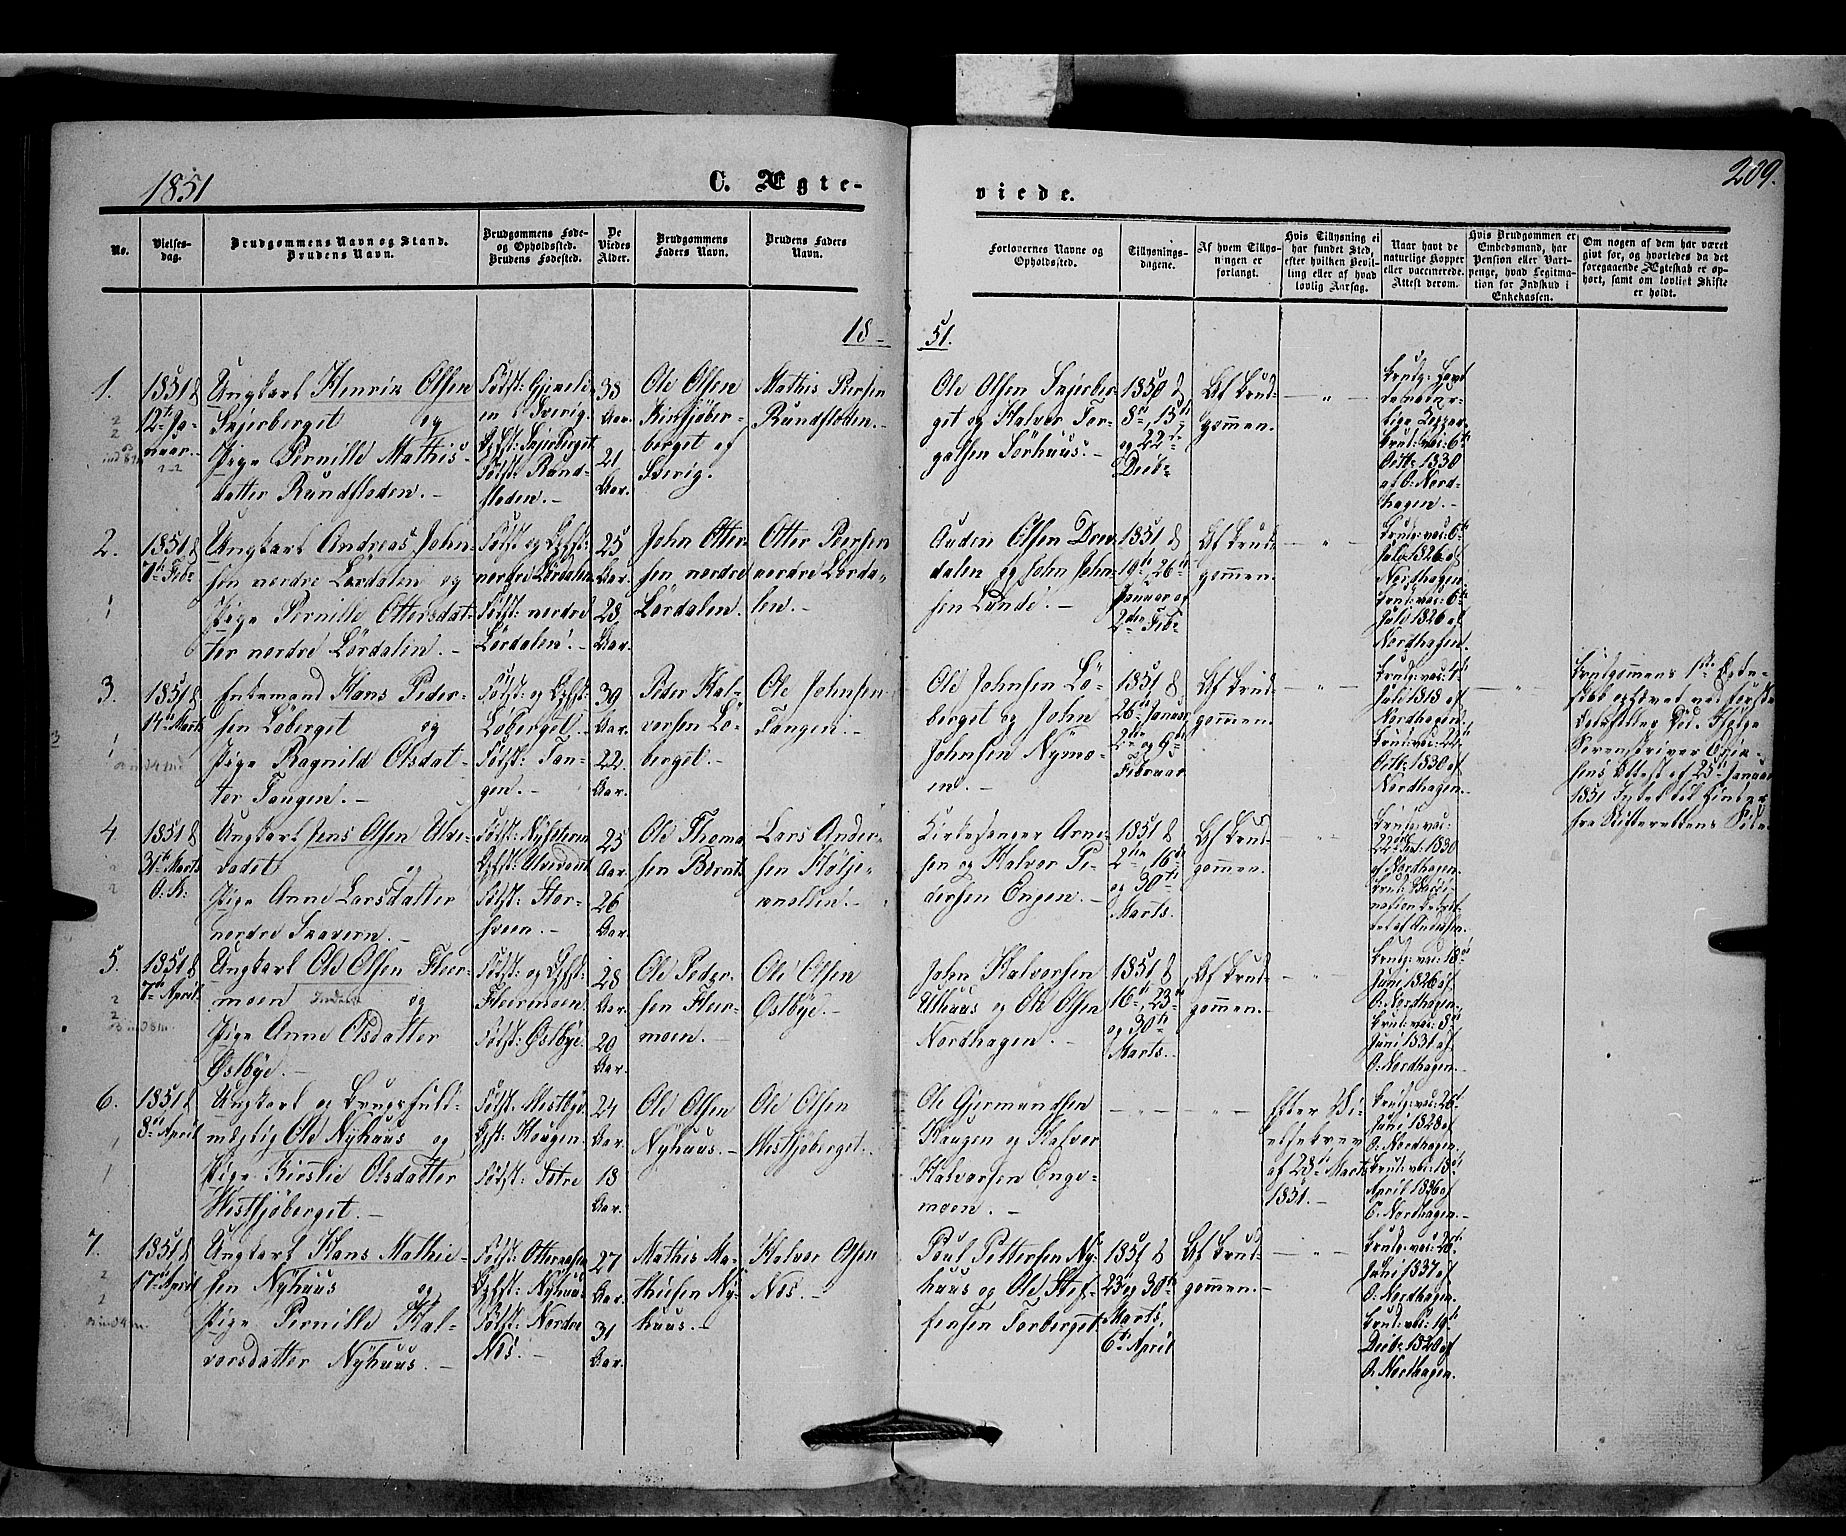 1851
C. Ægte-
viede.
209.
No.
Vielses-
dag.
Brudgommens Navn og Stand.
Brudens Navn.
Brudgommens Føde-
og Opholdssted.
Brudens Fødested.
De
Viedes
Alder.
Brudgommens
Faders Navn.
Brudens Faders
Navn.
Forlovernes Navne og
Opholdssted.
Tillysnings-
dagene.
Af hvem Tillys-
ningen er
forlangt.
Hvis Tillysning ei
har fundet Sted,
efter hvilken Bevil-
ling eller af hvad
lovlig Aarsag.
Naar havt de
naturlige Kopper
eller vaccinerede.
Attest derom.
Hvis Brudgommen er
Embedsmand, har
Pension eller Vart-
penge, hvad Legitima-
tion for Indskud i
Enkekassen.
Om nogen af dem har været
givt før, og hvorledes da det
foregaaende Ægteskab er op-
hørt, samt om lovligt Skifte
er holdt.
18-
51.
1.
1851 d
12te Ja-
nuar.
Ungkarl Henrik Olsen
Skjerberget og
Pige Pernille Mathis-
datter Rundfloden.
i Sverig.
Skjerberget
Fødst: Rund-
floden.
38
Aar.
21
Aar.
Ole Olsen
berget af
Sverig.
Mathis Persen
Rundfloden.
Ole Olsen Skjerber-
get og Halvor Tor-
galsen Sørhuus.
1850 d
8de, 15de
og 22de
Decbr
Af Brud-
gommen.
Brudg: havt
de natur-
lige Kopper
Brud: vac: 6te
Octbr 1830
af O. Nord-
hagen.
2.
1851 d
7de Febr
Ungkarl Andreas John-
sen nordre Lørdalen og
Pige Pernille Ottersdat-
ter nordre Lørdalen.
Fødst og Ophst:
nordre Lørdalen
Fødst: nordre
Lørdalen.
25
Aar.
28
Aar.
John Otter-
sen nordre
Lørdalen.
Otter Persen
nordre Lørda-
len.
Auden Olsen Drev-
dalen og John John-
sen Lunde.
1851 d
19de, 26de
Januar og
2den Febr
Af Brud-
gommen.
Brudg: vac: 6te
Juli 1826 af
Nordhagen.
Brud: vac: 6te
Juli 1826 af
Nordhagen.
3.
1851 d
14de Marts
Enkemand Hans Peder-
sen Løberget og
Pige Ragnild Olsdat-
ter Tangen.
Fødst: og Ophst:
Løberget.
Fødst: Tan-
gen.
39
Aar.
22
Aar.
Peder Hal-
vorsen Lø-
berget.
Ole Johnsen
Tangen.
Ole Johnsen Lø-
berget og John
Johnsen Nymo-
en.
1851 d
26de Januar
2den og 9de
Februar
Af Brud-
gommen.
Brudg: vac: 4de
Juli 1818 af
Nordhagen.
Brud: vac:
Octbr 1830 af
Nordhagen.
Brudgommens 1ste Ægte-
skab ophævet ved første
Sorenskriver
sens Attest af 25de Januar
1851
fra Skifterettens Side.
4
1851 d
31te Marts
Ungkarl Jens Olsen
og
Pige Anne Larsdatter
nordre
Fødst: Stor-
sveen.
25
Aar.
26
Aar.
Ole Thom-
sen
Lars Ander-
sen
Kirkesanger Arne-
sen og Halvor Pe-
dersen Engen.
1851 d
2den, 16de
og 30te
Marts.
Af Brud-
gommen.
Brudg: vac:
1830
af Nordhagen.
5.
1851 d
7de April
Ungkarl Ole Olsen Fler-
moen og
Pige Anne Olsdatter
Østbye.
Fødst: og Ophst:
Flermoen
Fødst: Østbye.
28
Aar.
20
Aar.
Ole Peder-
sen Fler-
moen.
Ole Olsen
Østbye.
John Halvorsen
Ulhuus og Ole Olsen
Nordhagen.
1851 d
16de, 23de
og 30te
Marts.
Af Brud-
gommen.
Brudg: vac: 18de
Juni 1826 af
O. Nordhagen.
Brud: vac: 8de
Juni 1831 af
O. Nordhagen.
6.
1851 d
8de April
Ungkarl og Brugsfuld-
mægtig Ole Nyhuus og
Pige Kirstie Olsdatter
Westsjøberget.
Ophst: Haugen
24
Aar.
18
Aar.
Ole Olsen
Nyhuus.
Ole Olsen
Westsjøberget.
Ole Gjermundsen
Haugen og Halvor
Halvorsen Enge-
moen.
Efter Vi-
elsebrev
af 28de Marts
1851.
Brudg: vac: 26de
Juni 1828 af
O. Nordhagen.
Brud: vac: 18de
April 1836 af
O. Nordhagen.
7.
1851 d
17de April
Ungkarl Hans Mathie-
sen Nyhuus og
Pige Pernille Hal-
vorsdatter Nyhuus.
Ophst: Nyhuus
Fødst: Nordre
Nes.
27
Aar.
31
Aar.
Mathis Ma-
thiesen Ny-
huus.
Halvor Olsen
Nes.
Poul Pettersen Ny-
huus og Ole Stef-
fensen Torberget
1851 d
23 og 30te
Marts,
6te April
Af Brud-
gommen.
Brudg: vac: 26de
Juni 1837 af
O. Nordhagen.
Brud: vac: 19de
Decbr 1820 af
O. Nordhagen.